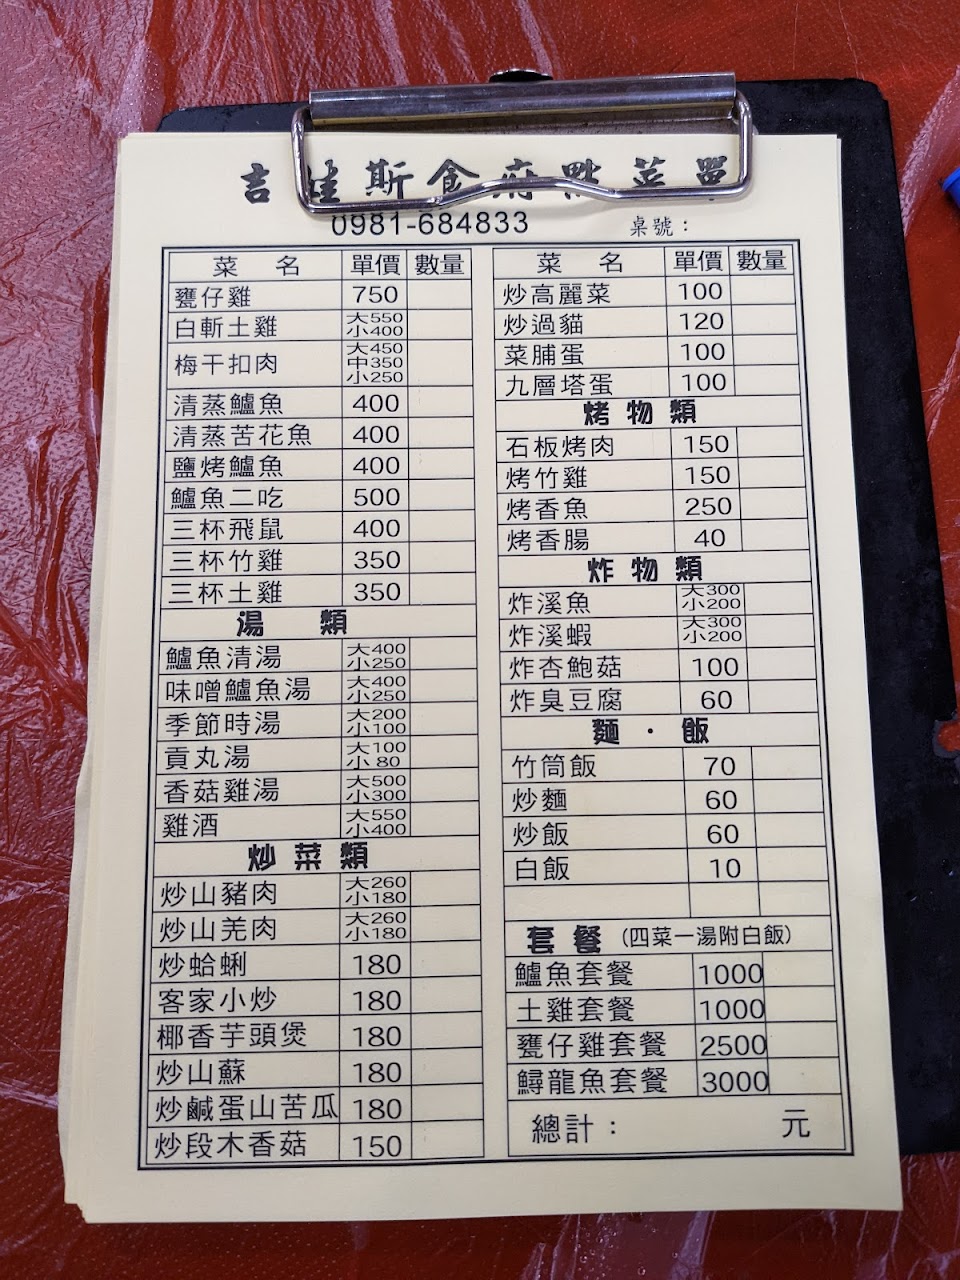 吉娃斯食府點菜單
0981-684833 桌號：
菜 名 單價 數量
甕仔雞 750
白斬土雞 大550 小400
梅干扣肉 大450 中350 小250
清蒸鱸魚 400
清蒸苦花魚 400
鹽烤鱸魚 400
鱸魚二吃 500
三杯飛鼠 400
三杯竹雞 350
三杯土雞 350
湯 類
鱸魚清湯 大400 小250
味噌鱸魚湯 大400 小250
季節時湯 大200 小100
貢丸湯 大100 小80
香菇雞湯 大500 小300
雞酒 大550 小400
炒菜類
炒山豬肉 大260 小180
炒山羌肉 大260 小180
炒蛤蜊 180
客家小炒 180
椰香芋頭煲 180
炒山蘇 180
炒鹹蛋山苦瓜 180
炒段木香菇 150
菜 名 單價 數量
炒高麗菜 100
炒過貓 120
菜脯蛋 100
九層塔蛋 100
烤物類
石板烤肉 150
烤竹雞 150
烤香魚 250
烤香腸 40
炸物類
炸溪魚 大300 小200
炸溪蝦 大300 小200
炸杏鮑菇 100
炸臭豆腐 60
麵・飯
竹筒飯 70
炒麵 60
炒飯 60
白飯 10
套餐 (四菜一湯附白飯)
鱸魚套餐 1000
土雞套餐 1000
甕仔雞套餐 2500
鱘龍魚套餐 3000
總計： 元